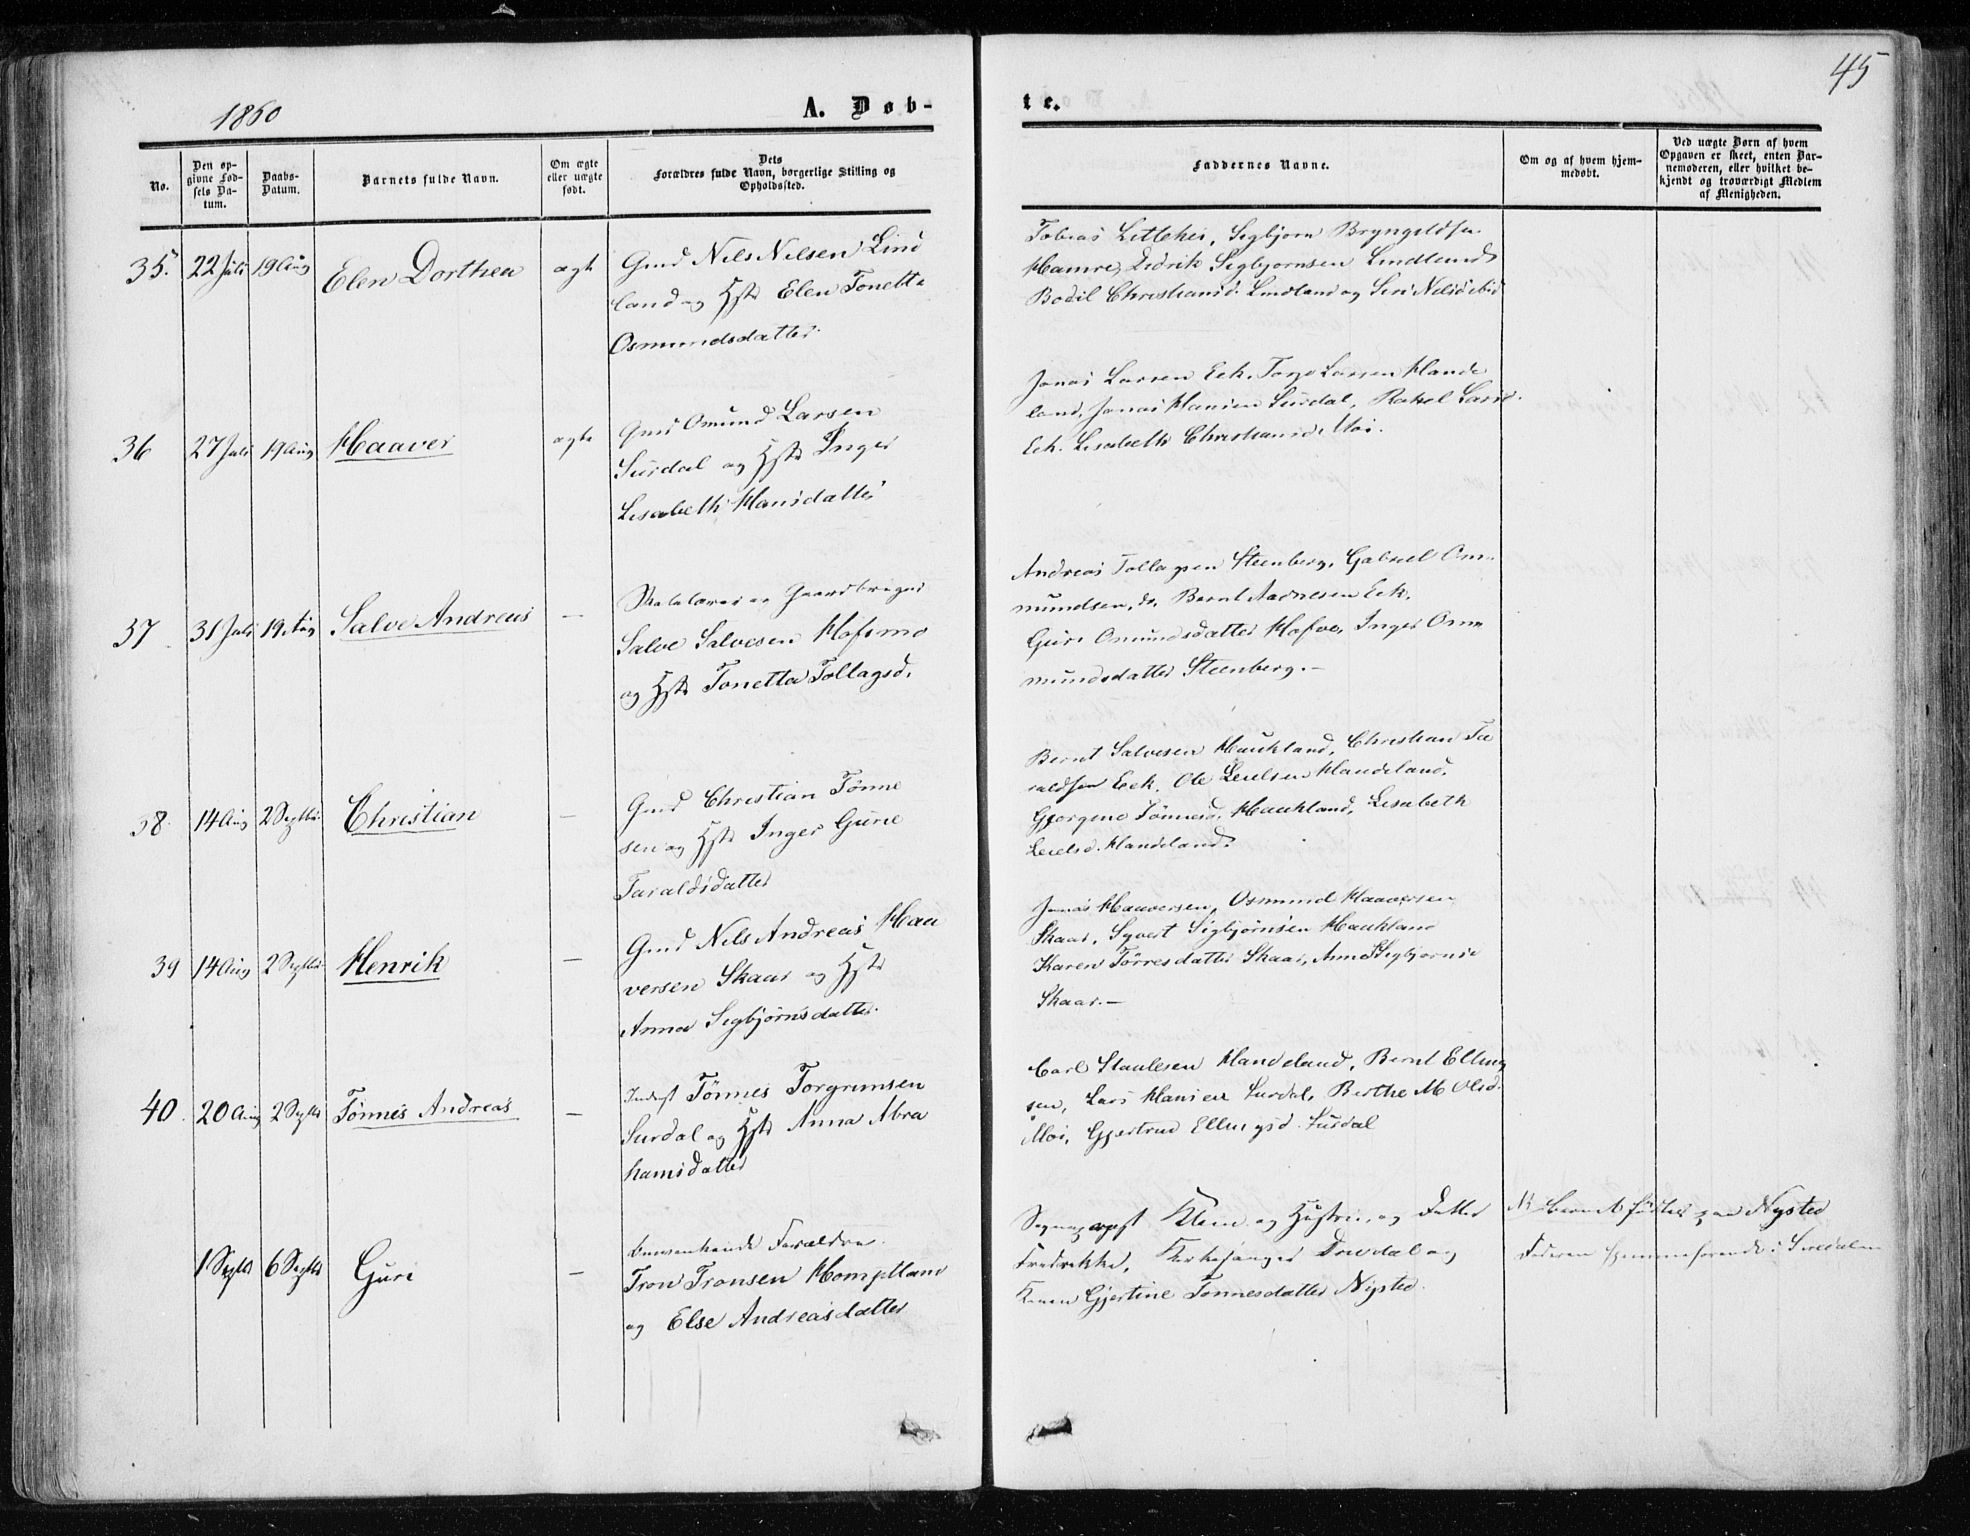 45
1860
A. Døb-
te.
No.
Den op-
givne Fød-
sels Da-
tum.
Daabs-
Datum.
Barnets fulde Navn.
Om ægte
eller uægte
født.
Dets
Forældres fulde Navn, borgerlige Stilling og
Opholdssted.
Faddernes Navne.
Om og af hvem hjem-
medøbt.
Ved uægte Børn af hvem
Opgaven er skeet, enten Bar-
nemoderen, eller hvilket be-
kjendt og troværdigt Medlem
af Menigheden.
35. 22 Juli 19 Aug Elen Dorthea ægte
Gmd Nils Nilsen Lind
land og Hst Elen Tonette
Osmundsdatter.
Tobias Littlehei, Segbjørn Bryngelds
Hamre, Didrik Segbjørnsen Lindland
Bodil Christiansd. Lindland og Siri Nilsd ibid
36 27 Juli 19 Aug Haaver ægte
Gmd Omund Larsen
Surdal og Hst Inger
Lisabeth Hansdatter
Jonas Larsen Eek, Larsen Hande
land, Jonas Hansen Surdal, Rakel Larsd.
Eek. Lisabeth Christiansd. Moi.
37 31 Juli 19 Aug Salve Andreas —
Gaardbruger
Salve Salvesen Hofsmo
og Hst Tonetta Tollagsd.
Andreas Tollagsen Steenberg, Gabriel Om
mundsen, do, Bernt Aadnesen Eek,
Guri Omundsdatter Hofve, Inger Om
mundsdatter Steenberg. —
38. 14 Aug 2 Septbr Christian —
Gmd Christian Tønne
sen og Hst Inger Gurie
Taraldsdatter
Bernt Salvesen Haukland, Christian Ta
raldsen Eek, Ole Leulsen Handeland,
Gjorgine Tønnesd. Haukland, Lisabeth
Leulsd. Handeland.
39 14 Aug 2 Septbr Henrik —
Gmd Nils Andreas Haa
versen Skaar og Hst
Anna Segbjørnsdatter.
Jonas Haaversen, Osmund Haaversen
Skaar, Syvert Sigbjørnsen Haukland
Karen Tørresdatter Skaar, Anne Segbjørnsd
Skaar. —
40. 20 Aug 2 Septb Tønnes Andreas —
Inderst Tønnes Torgrimsen
Surdal og Hst Anna Abra
hamsdatter
Carl Staulesen Handeland, Bernt Elling
sen, Lars Hansen Surdal, Berthe M Olsd.
Moi, Gjertrud Ellingsd. Surdal
1 Septb 6 Septb Guri —
Forældre
Tron Tronsen Hompland
og Else Andreasdatter
Klem og Hustru, og Datter
Fredrikke, Kirkesanger Drivdal og
Kone Gjertine Tønnesdatter Nysted.
Barnet fødtes paa Nysted
Faderen hjemmehørende i Siredalen